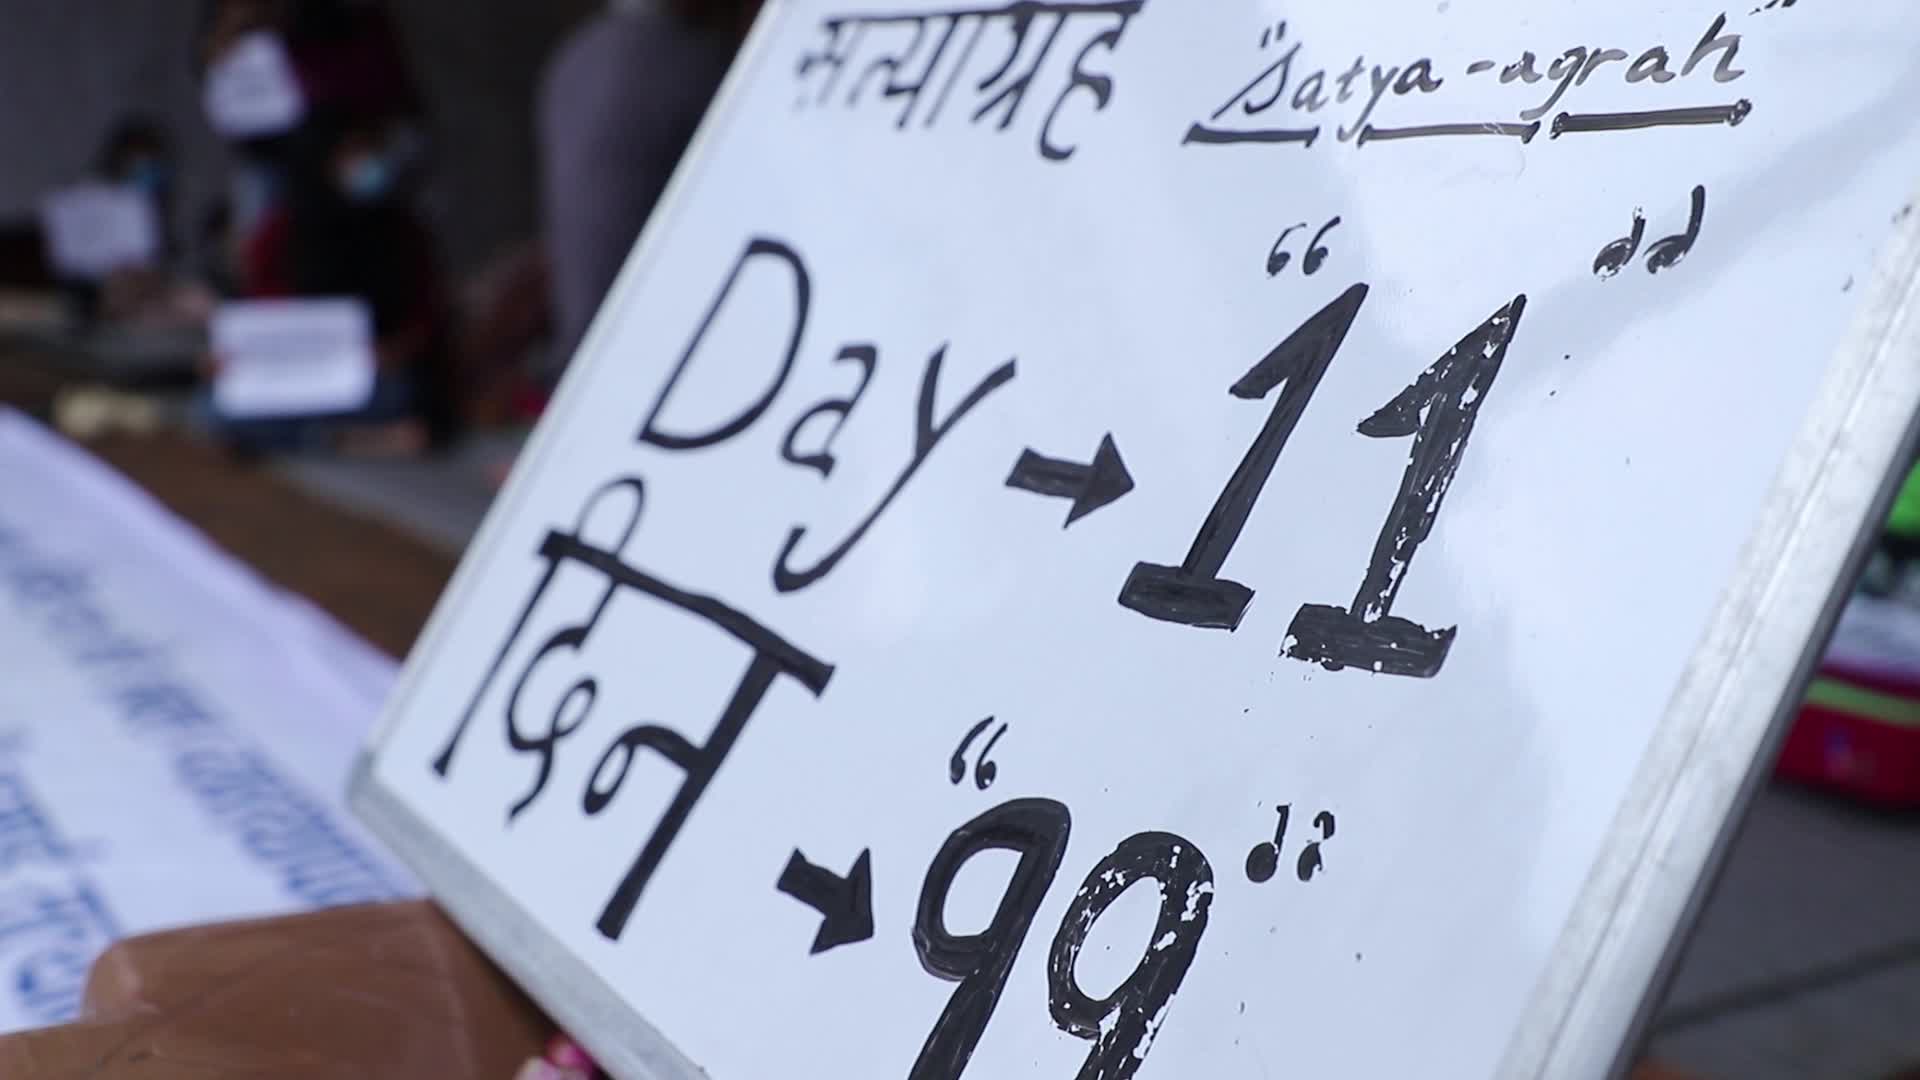 सत्याग्रह "Satya-agrah"
Day → "11"
दिन → "११"